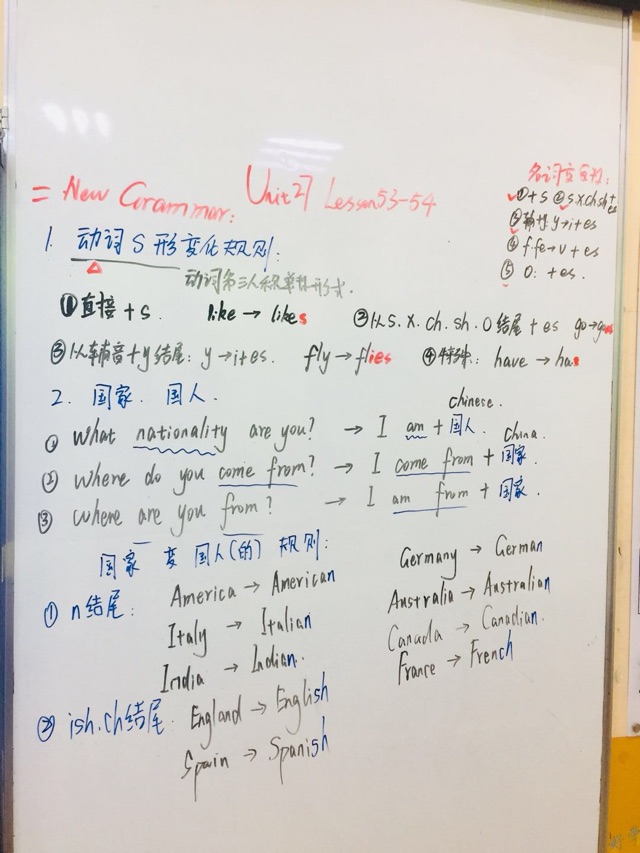 = New Grammar: Unit 27 Lesson 53-54
1. 动词 S 形变化规则:
动词第三人称单数形式.
① 直接 + s. like → likes
② 以 s. x. ch. sh. o 结尾 + es go → goes
③ 以辅音 + y 结尾: y → i + es. fly → flies
④ 特殊: have → has
名词变复数:
① + s ② s.x.ch.sh + es
③ 辅+y: y → i + es
④ f. fe → v + es
⑤ o: + es.
2. 国家. 国人.
① What nationality are you? → I am + 国人. chinese.
② Where do you come from? → I come from + 国家. china.
③ where are you from? → I am from + 国家.
国家 变 国人(的) 规则:
① n 结尾: America → American
Italy → Italian
India → Indian.
Germany → German
Australia → Australian
Canada → Canadian.
France → French
② ish. ch 结尾. England → English
Spain → Spanish